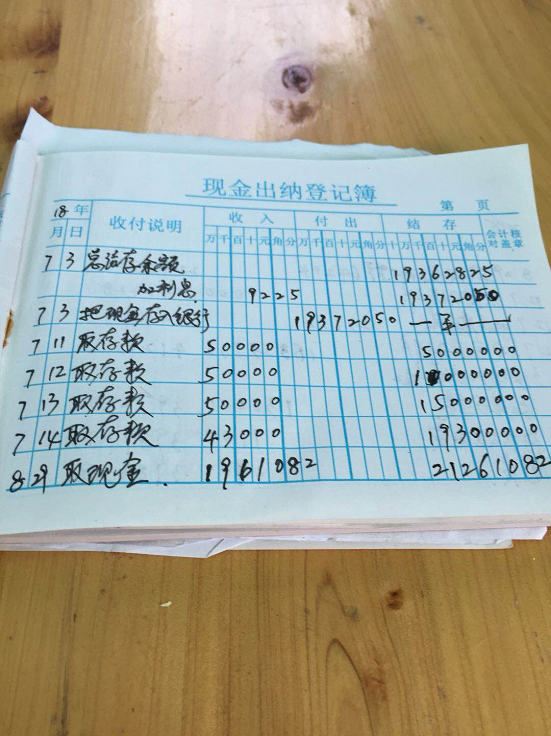 现金出纳登记簿
第 页
18年 收付说明 收入 付出 结存 会计核对盖章
月 日 万千百十元角分 万千百十元角分 十万千百十元角分
7 3 总活存余额 19362825
加利息 9225 19372050
7 3 把现金存入银行 19372050 一至—
7 11 取存款 50000 5000000
7 12 取存款 50000 10000000
7 13 取存款 50000 15000000
7 14 取存款 43000 19300000
8 29 取现金. 1961082 21261082